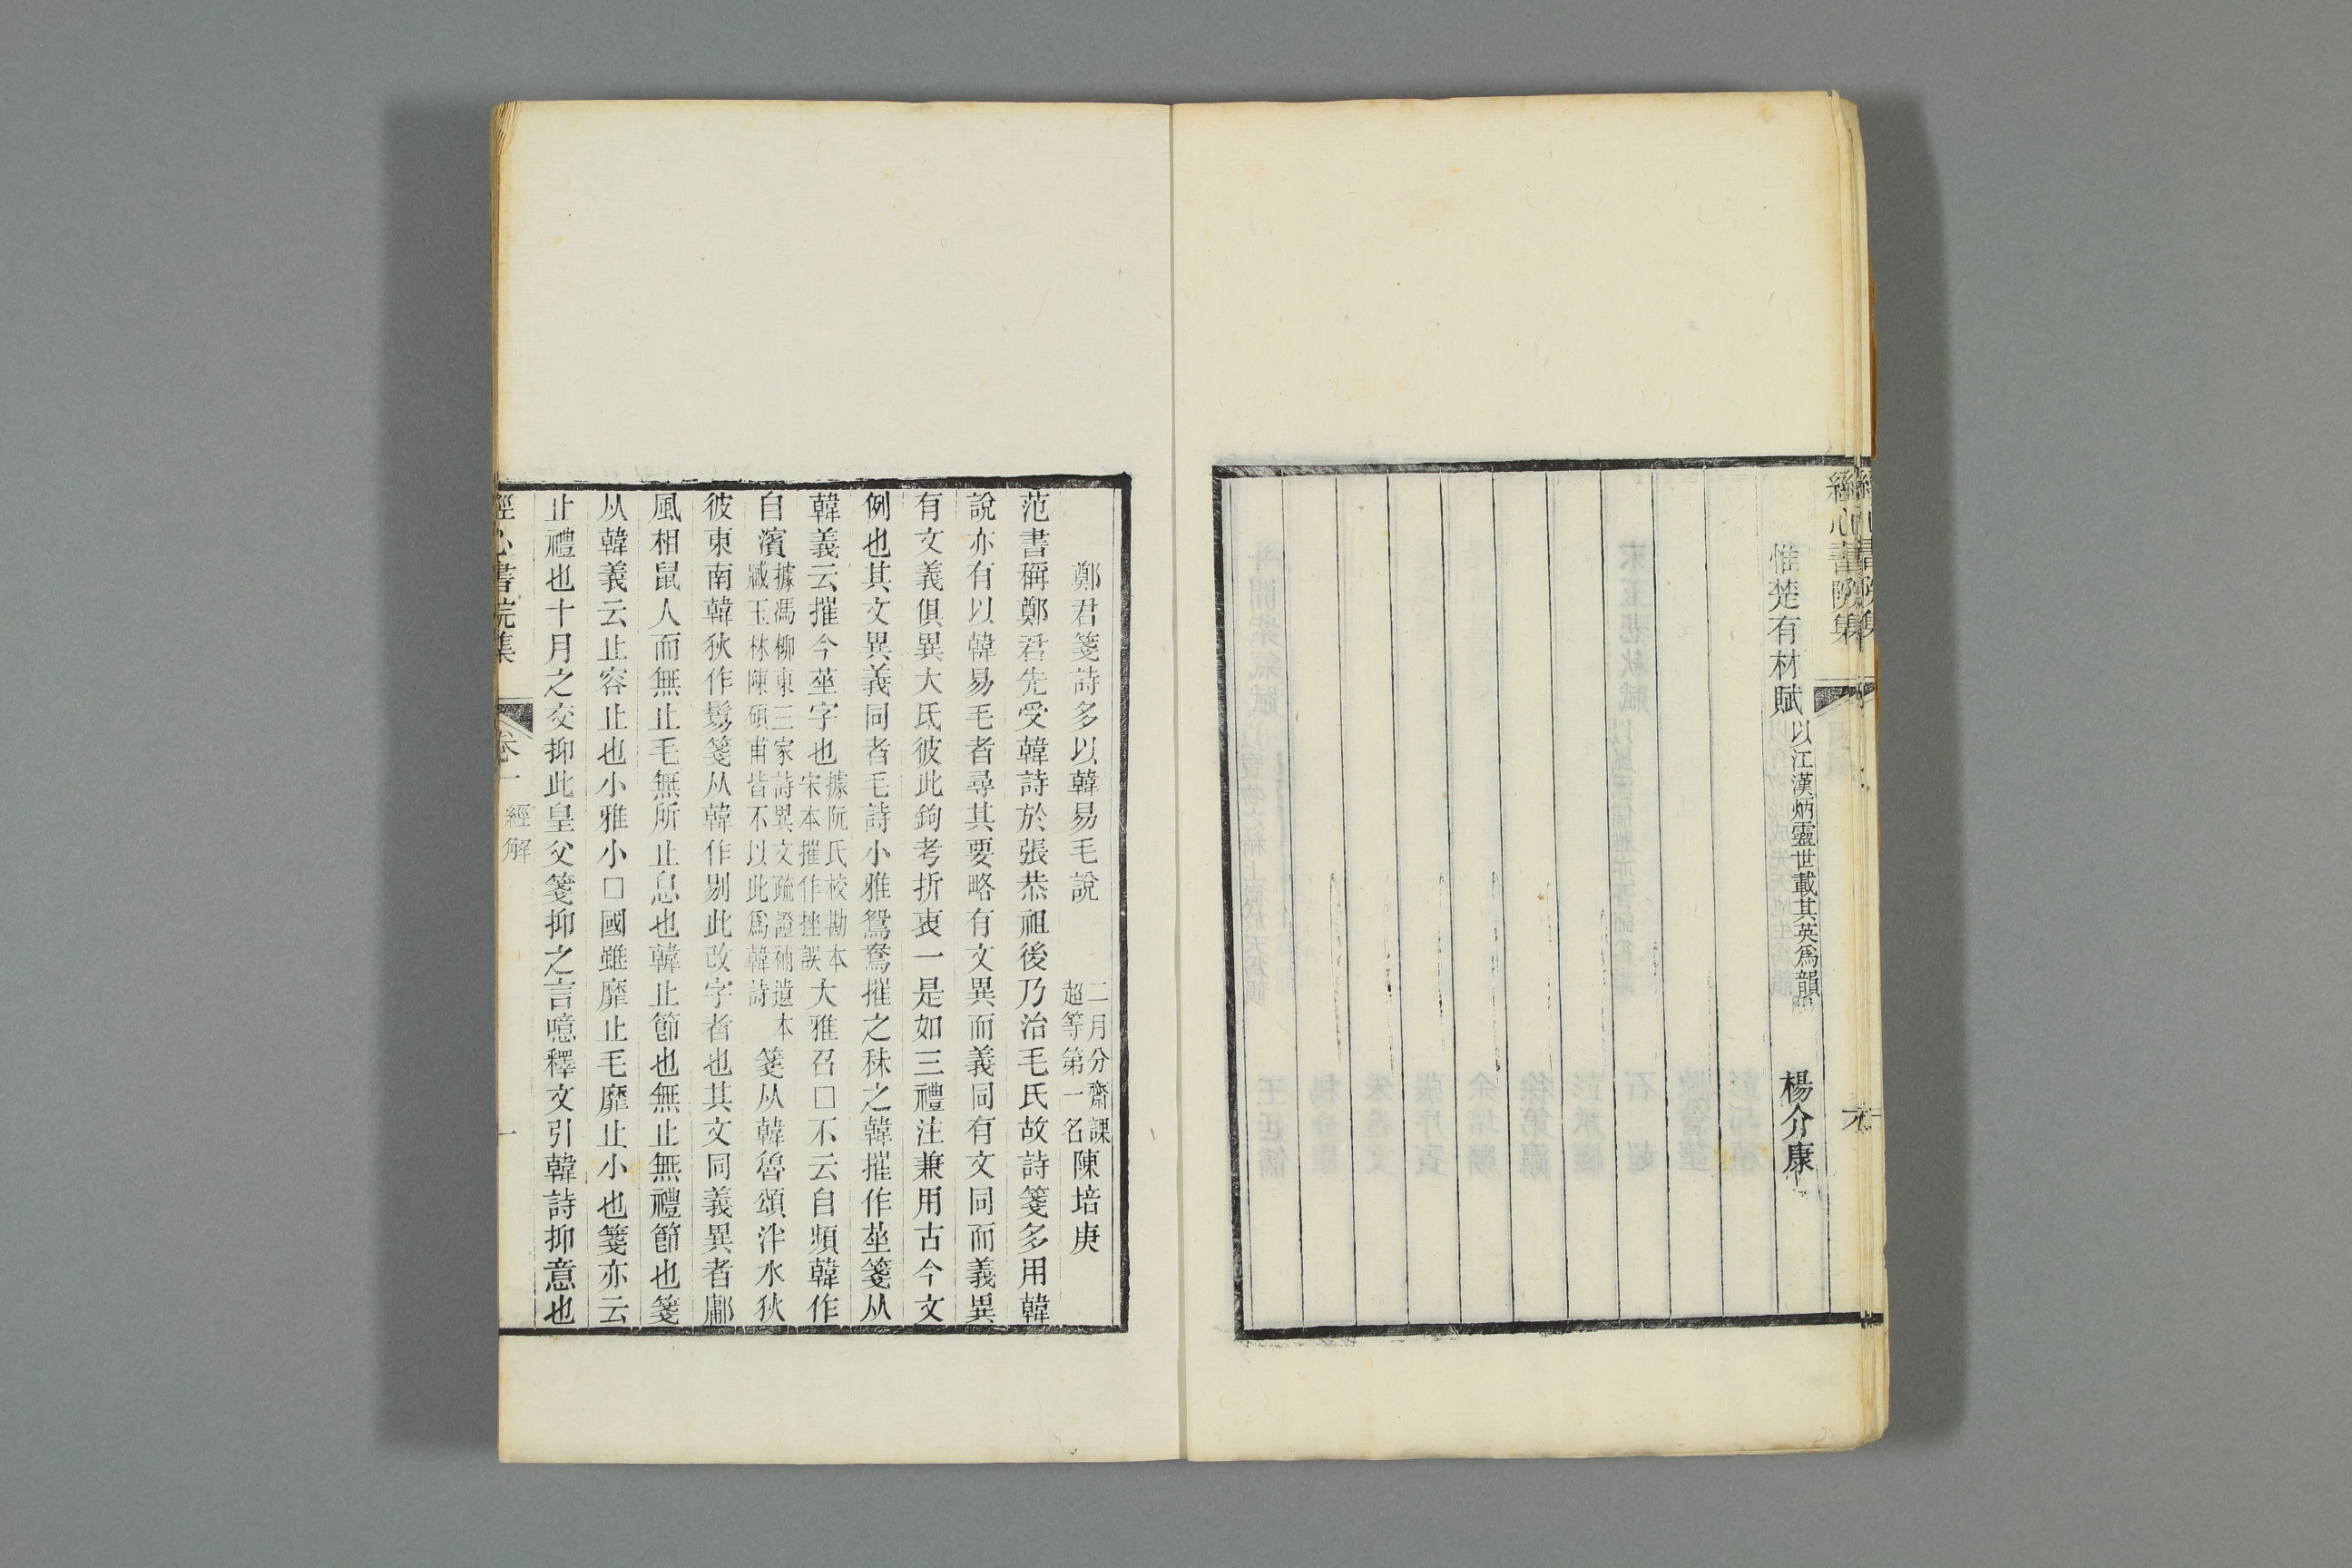 經心書院集
惟楚有材賦以江漢炳靈世載其英爲韻 楊介康
鄭君箋詩多以韓易毛說 二月分齋課超等第一名 陳培庚
范書稱鄭君先受韓詩於張恭祖後乃治毛氏故詩箋多用韓
說亦有以韓易毛者尋其要略有文異而義同有文同而義異
有文義俱異大氐彼此鉤考折衷一是如三禮注兼用古今文
例也其文異義同者毛詩小雅鴛鴦摧之秣之韓摧作莝箋从
韓義云摧今莝字也據阮氏校勘本宋本摧作挫誤大雅召□不云自頻韓作
自濱據馮柳東三家詩異文疏證補遺本臧玉林陳碩甫皆不以此爲韓詩箋从韓魯頌泮水狄
彼東南韓狄作鬄箋从韓作剔此改字者也其文同義異者鄘
風相鼠人而無止毛無所止息也韓止節也無止無禮節也箋
从韓義云止容止也小雅小□國雖靡止毛靡止小也箋亦云
止禮也十月之交抑此皇父箋抑之言噫釋文引韓詩抑意也
經心書院集 卷一 經解 一